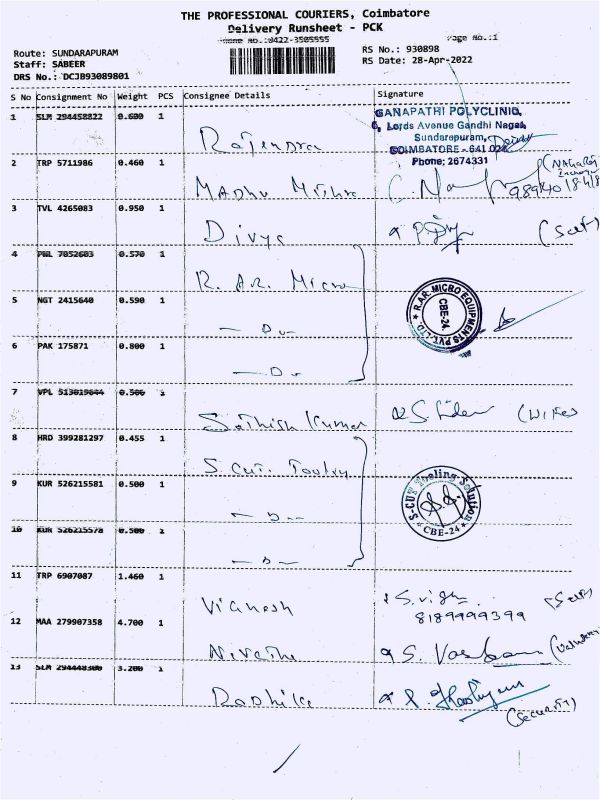 THE PROFESSIONAL COURIERS, Coimbatore
Delivery Runsheet - PCK
Phone no.:0422-3505555 Page no.:1
Route: SUNDARAPURAM RS No.: 930898
Staff: SABEER RS Date: 28-Apr-2022
DRS No.: DCJB93089801
S No Consignment No Weight PCS Consignee Details Signature
1 SLM 294458822 0.600 1 Rajendra
GANAPATHI POLYCLINIC,
6, Lords Avenue Gandhi Nagar,
Sundarapuram,
COIMBATORE - 641 024
Phone: 2674331
2 TRP 5711986 0.460 1 Madhu Mithra
3 TVL 4265083 0.950 1 Divya (Self)
4 PNL 7052603 0.570 1 R. AR. Micro
R.AR. MICRO EQUIPMENTS PVT. LTD.
CBE-24.
5 NGT 2415640 0.590 1 — Do —
6 PAK 175871 0.800 1 — Do
7 VPL 513019644 0.500 1 Sathish Kumar (Wife)
8 HRD 399281297 0.455 1 S. Cut. Tooling
S-CUT Tooling Solution
CBE-24
9 KUR 526215581 0.500 1 — Do —
10 KUR 526215578 0.500 1 — Do —
11 TRP 6907087 1.460 1 Vignesh S. Vign (Self)
8189999399
12 MAA 279907358 4.700 1 Nivetha S.
13 SLM 294448300 3.200 1 Radhika
(Security)